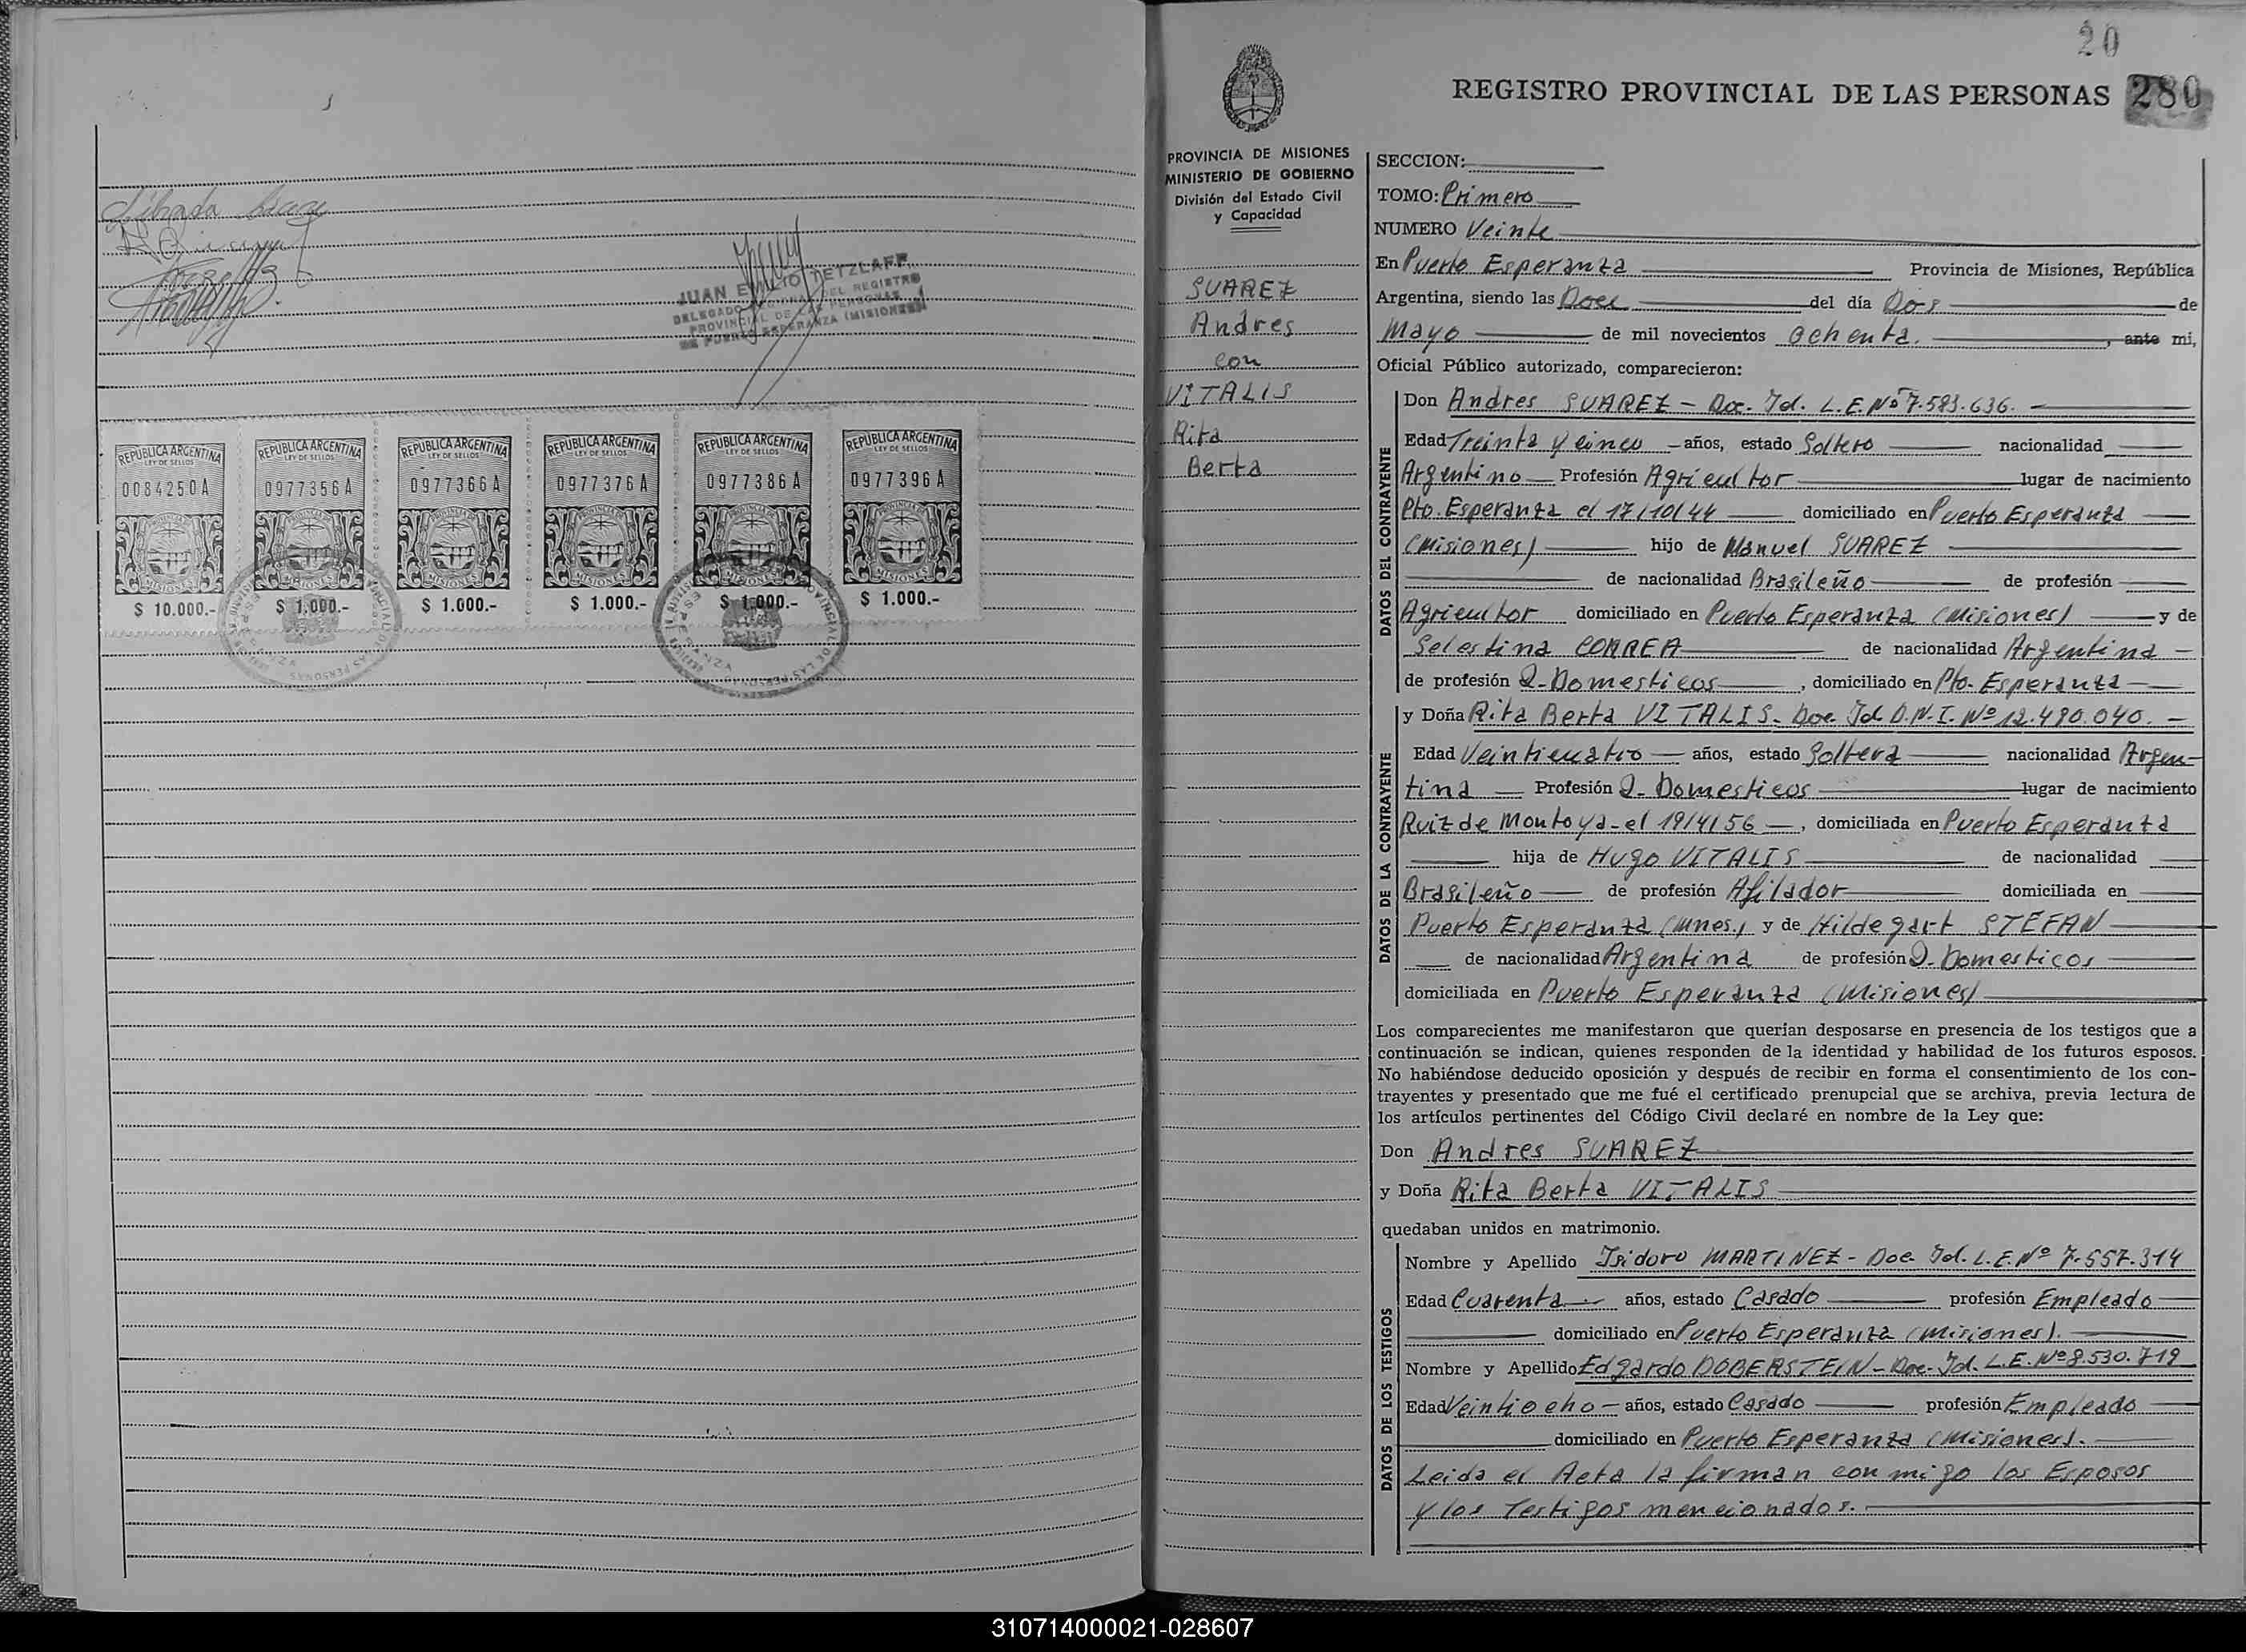 Librada
JUAN EMILIO TETZLAFF
DELEGADO DEL REGISTRO
PROVINCIAL DE LAS PERSONAS
DE PUERTO ESPERANZA (MISIONES)
REPUBLICA ARGENTINA REPUBLICA ARGENTINA REPUBLICA ARGENTINA REPUBLICA ARGENTINA REPUBLICA ARGENTINA REPUBLICA ARGENTINA
LEY DE SELLOS LEY DE SELLOS LEY DE SELLOS LEY DE SELLOS LEY DE SELLOS LEY DE SELLOS
0084250A 0977356A 0977366A 0977376A 0977386A 0977396A
MISIONES MISIONES MISIONES MISIONES MISIONES MISIONES
$ 10.000.- $ 1.000.- $ 1.000.- $ 1.000.- $ 1.000.- $ 1.000.-
20
REGISTRO PROVINCIAL DE LAS PERSONAS 280
PROVINCIA DE MISIONES
MINISTERIO DE GOBIERNO
División del Estado Civil
y Capacidad
SUAREZ
Andres
con
VITALIS
Rita
Berta
SECCION:
TOMO: Primero
NUMERO Veinte
En Puerto Esperanza Provincia de Misiones, República
Argentina, siendo las Doce del día Dos de
Mayo de mil novecientos Ochenta. , ante mi,
Oficial Público autorizado, comparecieron:
DATOS DEL CONTRAYENTE
Don Andres SUAREZ - Doc. Id. L.E. Nº 7.583.636. -
Edad Treinta y cinco - años, estado Soltero nacionalidad
Argentino Profesión Agricultor lugar de nacimiento
Pto. Esperanza el 17/10/44 domiciliado en Puerto Esperanza
(Misiones) hijo de Manuel SUAREZ
de nacionalidad Brasileño de profesión
Agricultor domiciliado en Puerto Esperanza (Misiones) y de
Selestina CORREA de nacionalidad Argentina -
de profesión Q-Domesticos , domiciliado en Pto. Esperanza
DATOS DE LA CONTRAYENTE
y Doña Rita Berta VITALIS. Doc Id D.N.I. Nº 12.480.040. -
Edad Veinticuatro años, estado Soltera nacionalidad Argen-
tina Profesión Q-Domesticos lugar de nacimiento
Ruiz de Montoya - el 19/4/56 , domiciliada en Puerto Esperanza
hija de Hugo VITALIS de nacionalidad
Brasileño de profesión Afilador domiciliada en
Puerto Esperanza (Mnes.) y de Hildegart STEFAN
de nacionalidad Argentina de profesión Q-Domesticos
domiciliada en Puerto Esperanza (Misiones)
Los comparecientes me manifestaron que querían desposarse en presencia de los testigos que a
continuación se indican, quienes responden de la identidad y habilidad de los futuros esposos.
No habiéndose deducido oposición y después de recibir en forma el consentimiento de los con-
trayentes y presentado que me fué el certificado prenupcial que se archiva, previa lectura de
los artículos pertinentes del Código Civil declaré en nombre de la Ley que:
Don Andres SUAREZ
y Doña Rita Berta VITALIS
quedaban unidos en matrimonio.
DATOS DE LOS TESTIGOS
Nombre y Apellido Isidoro MARTINEZ - Doc. Id. L.E. Nº 7.557.314
Edad Cuarenta años, estado Casado profesión Empleado
domiciliado en Puerto Esperanza (Misiones).
Nombre y Apellido Edgardo DOBERSTEIN - Doc. Id. L.E. Nº 8.530.719
Edad Veintiocho - años, estado Casado profesión Empleado
domiciliado en Puerto Esperanza (Misiones).
Leida el Acta la firman con migo los Esposos
y los Testigos mencionados.
310714000021-028607